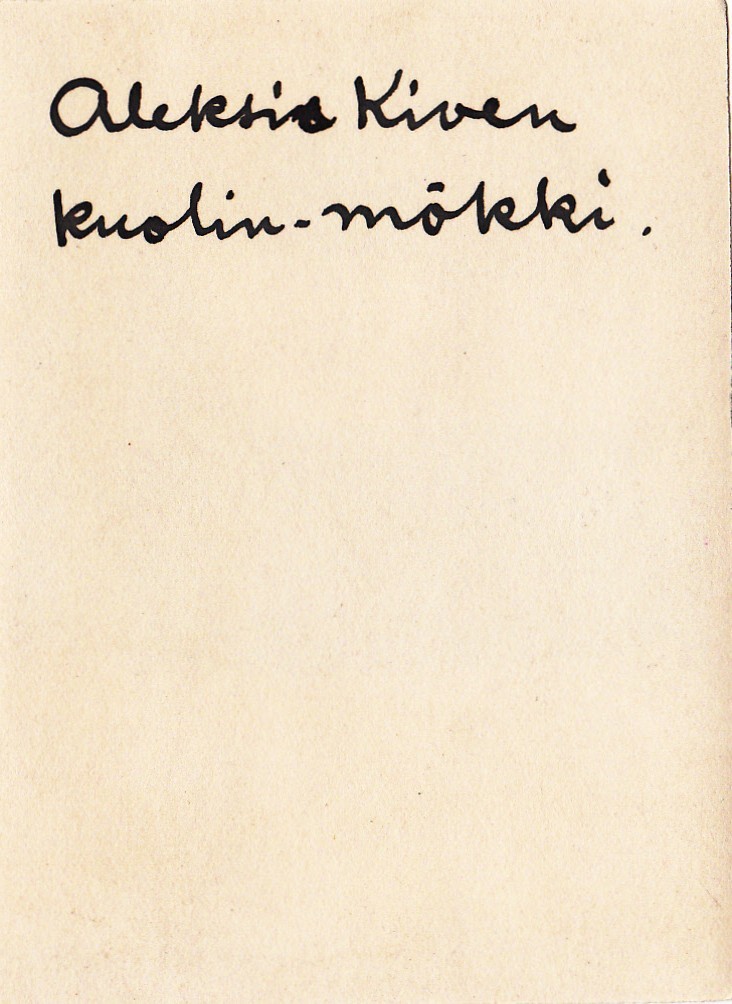 Aleksis Kiven
kuolin-mökki.